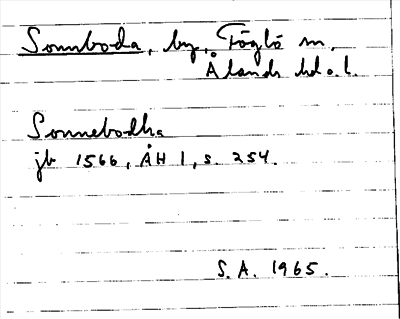 Sonnboda, by, Föglö sn,
Ålands hd o. l.
Sonnebodha
jb 1566, ÅH 1, s. 254.
S. A. 1965.